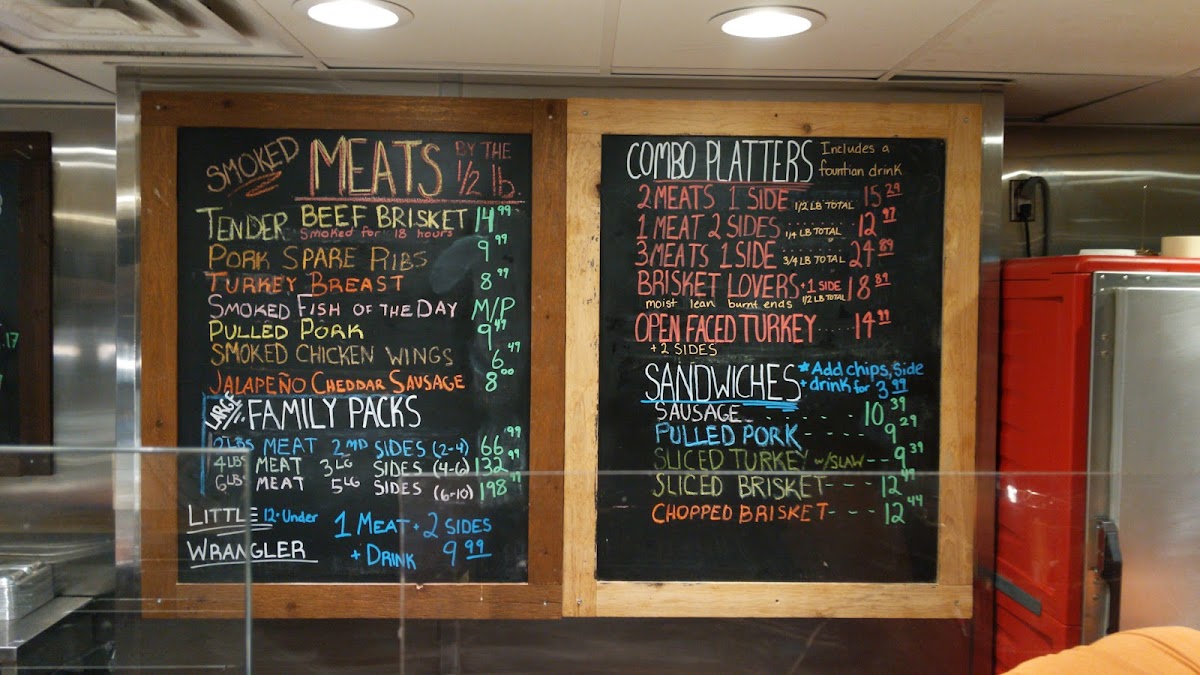 SMOKED MEATS BY THE 1/2 lb.
TENDER BEEF BRISKET 14.99
Smoked for 18 hours
PORK SPARE RIBS 9.99
TURKEY BREAST 8.99
SMOKED FISH OF THE DAY M/P
PULLED PORK 9.49
SMOKED CHICKEN WINGS 6.49
JALAPEÑO CHEDDAR SAUSAGE 8.00
LARGE FAMILY PACKS
2LBS MEAT 2 MD SIDES (2-4) 66.99
4LBS MEAT 3 LG SIDES (4-6) 132.99
6LBS MEAT 5 LG SIDES (6-10) 198.99
LITTLE 12+Under 1 MEAT + 2 SIDES
WRANGLER + DRINK 9.99
.17
COMBO PLATTERS Includes a
fountian drink
2 MEATS 1 SIDE 1/2 LB TOTAL 15.29
1 MEAT 2 SIDES 1/4 LB TOTAL 12.97
3 MEATS 1 SIDE 3/4 LB TOTAL 24.89
BRISKET LOVERS +1 SIDE 18.89
moist lean burnt ends 1/2 LB TOTAL
OPEN FACED TURKEY 14.99
+ 2 SIDES
SANDWICHES *Add chips, Side
+ drink for 3.99
SAUSAGE 10.39
PULLED PORK 9.29
SLICED TURKEY w/SLAW 9.39
SLICED BRISKET 12.49
CHOPPED BRISKET 12.44